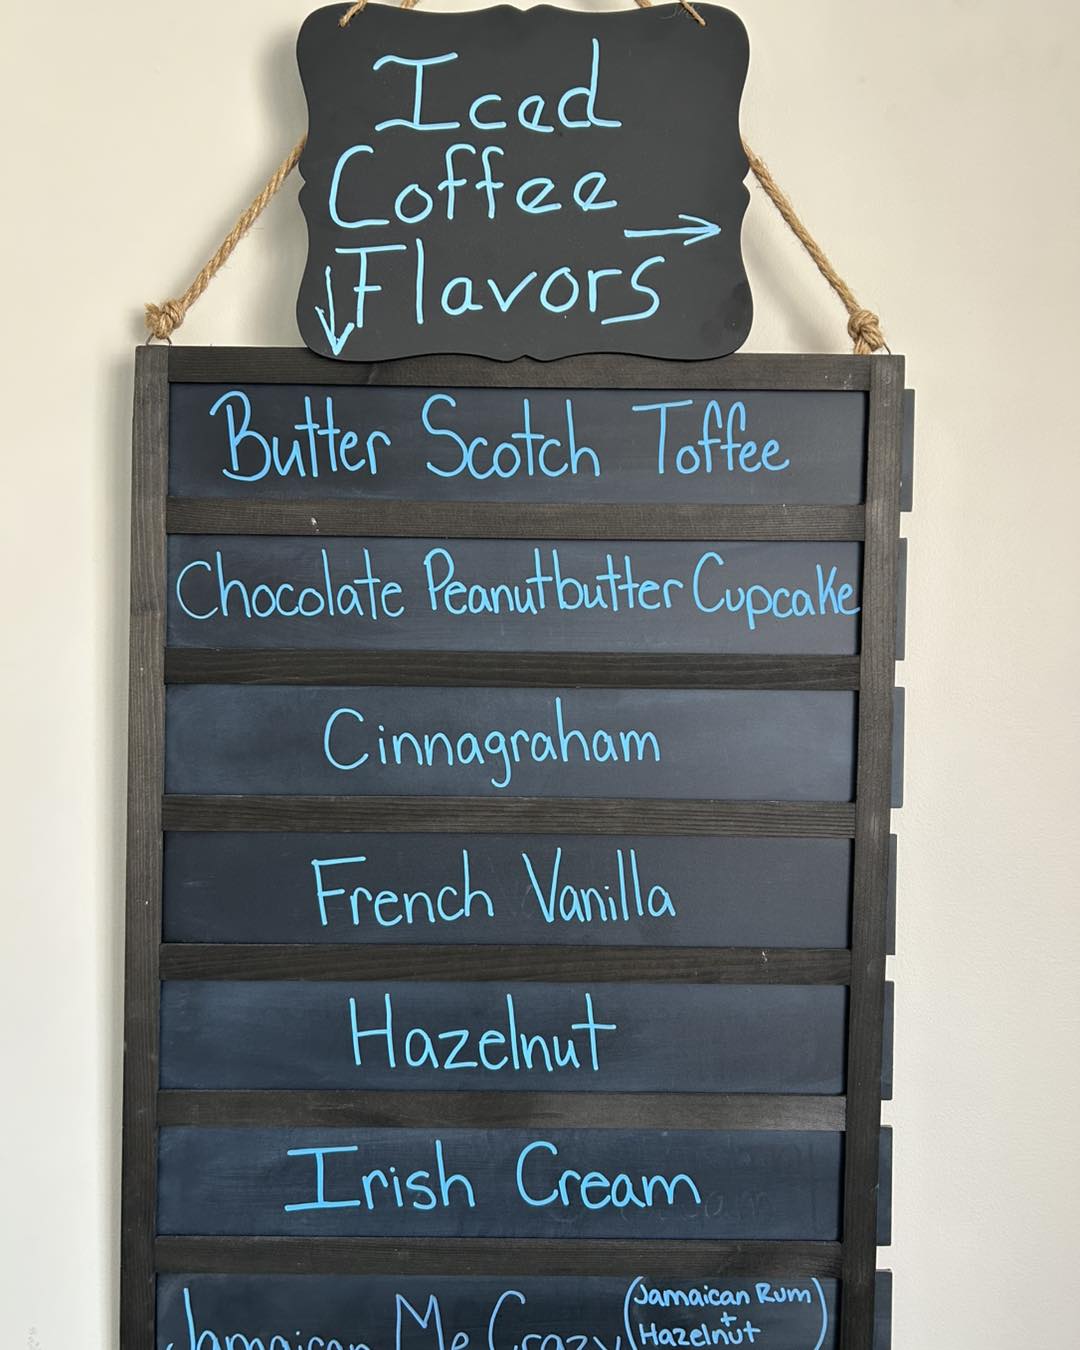 Iced
Coffee
→
Flavors
↓
Butter Scotch Toffee
Chocolate Peanutbutter Cupcake
Cinnagraham
French Vanilla
Hazelnut
Irish Cream
Jamaican Me Crazy (Jamaican Rum
+
Hazelnut)